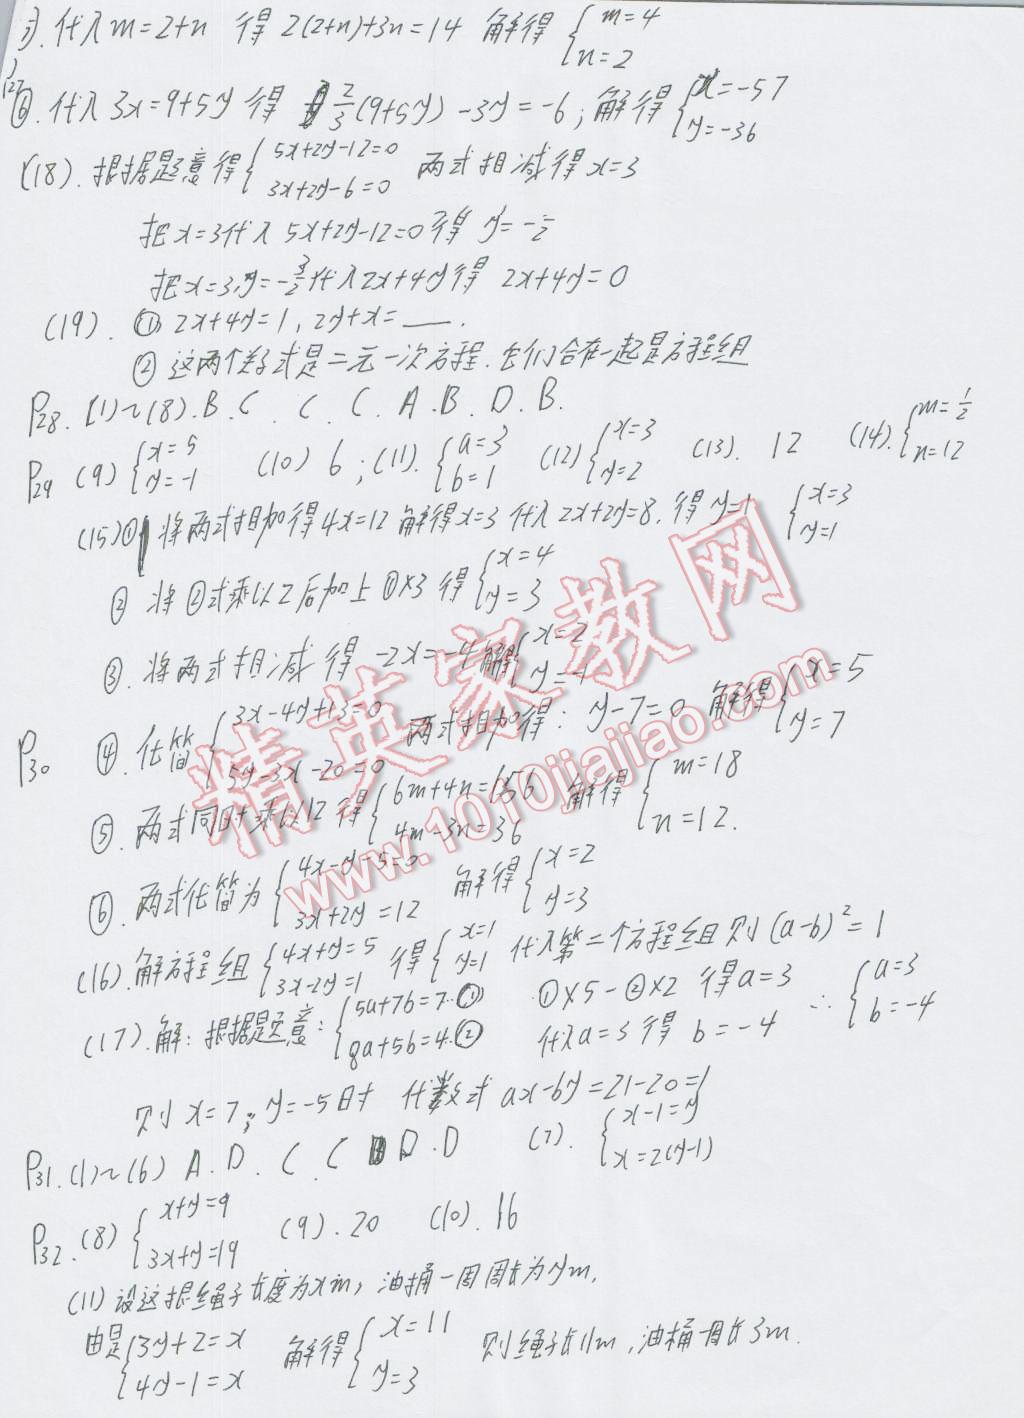 代入m=2+n 得 2(2+n)+3n=14 解得{m=4 n=2
⑥.代入3x=9+5y 得 2/3(9+5y)-3y=-6;解得{x=-57 y=-36
(18).根据题意得{5x+2y-12=0 3x+2y-6=0 两式相减得x=3
把x=3代入5x+2y-12=0得 y=-
把x=3,y=-3/2代入2x+4y得 2x+4y=0
(19). ① 2x+4y=1, 2y+x=__.
② 这两个等式是二元一次方程.它们合在一起是方程组
P28. (1)~(8).B.C.C.C.A.B.D.B.
P29 (9){x=5 y=-1 (10) 6;(11).{a=3 b=1 (12){x=3 y=2 (13). 12 (14).{m=1/2 n=12
(15)① 将两式相加得4x=12 解得x=3 代入2x+2y=8.得y=1 {x=3 y=1
② 将②式乘以2后加上①×3 得{x=4 y=3
③.将两式相减 得 -2x=-4 解得{x=2
P30 ④.化简{3x-4y+13=0 5y-3x-20=0 两式相加得: y-7=0 解得{x=5 y=7
⑤.两式同时乘以12得{6m+4n=156 4m-3n=36 解得{m=18 n=12.
⑥.两式化简为{4x-y-5=0 3x+2y=12 解得{x=2 y=3
(16).解方程组{4x+y=5 3x-2y=1 得{x=1 y=1 代入第二个方程组则(a-b)²=1
(17).解:根据题意:{5a+7b=7.① 8a+5b=4.② ①×5-②×2 得a=3 代入a=3得 b=-4 ∴{a=3 b=-4
则x=7;y=-5时 代数式 ax-by=21-20=1
P31.(1)~(6) A.D.C.C.D.D (7).{x-1=y x=2(y-1)
P32.(8){x+y=9 3x+y=19 (9).20 (10).16
(11)设这根绳子长度为xm,油桶一周周长为ym.
由是{3y+2=x 4y-1=x 解得{x=11 y=3 则绳子长11m,油桶一周长3m.
精英家教网
www.1010jiajiao.com